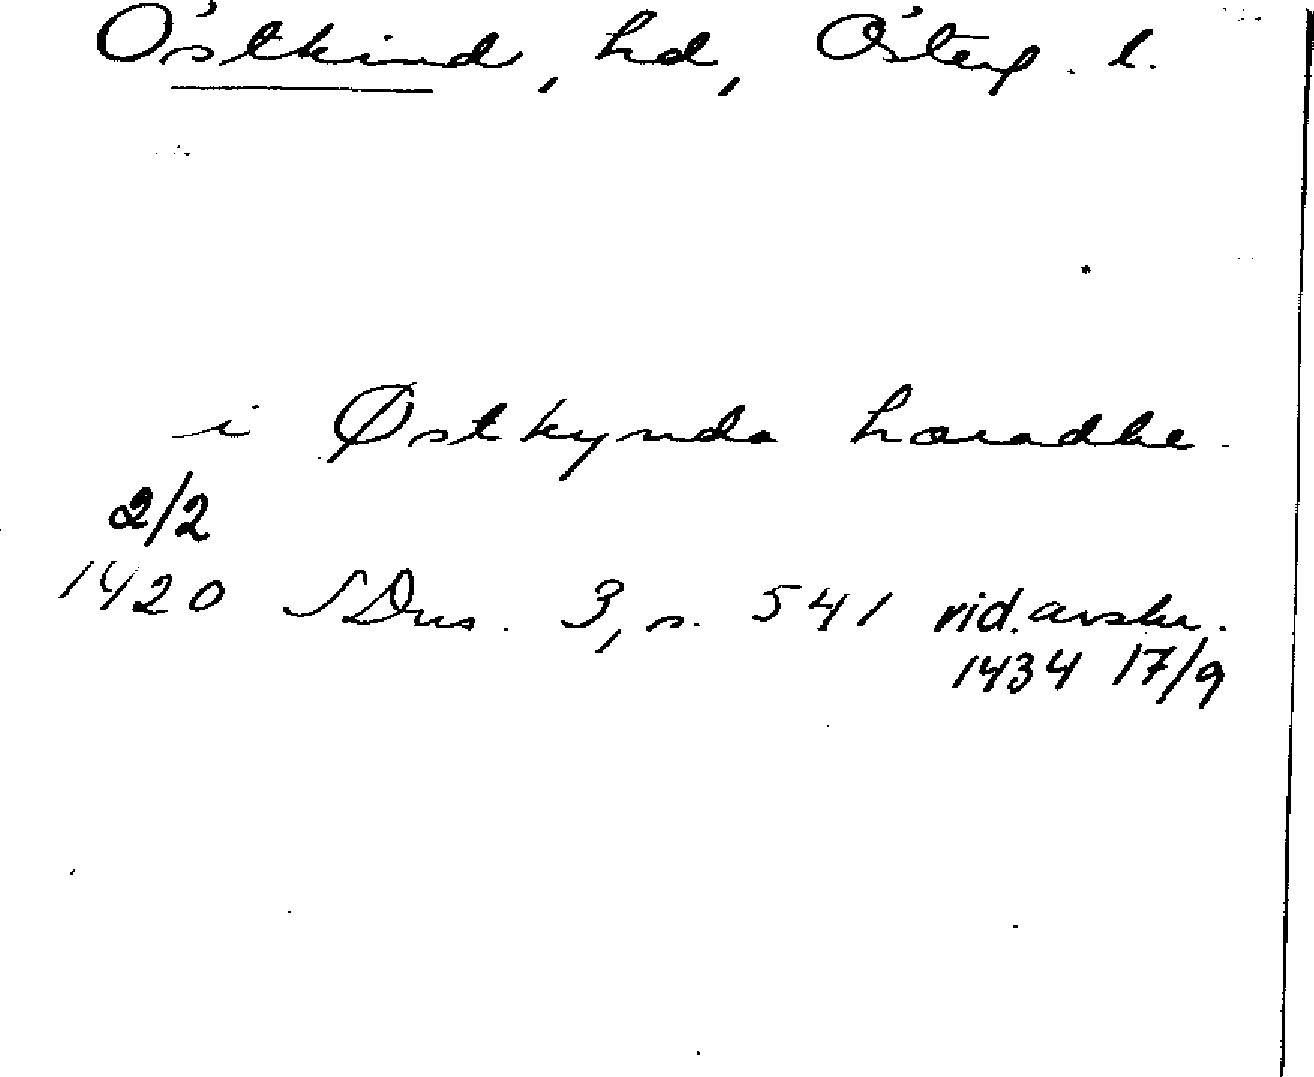 Östkind, hd, Österg. l.
i Østkynda hæradhe
2/2
1420 SDns. 3, s. 541 vid. avskr.
1434 17/9